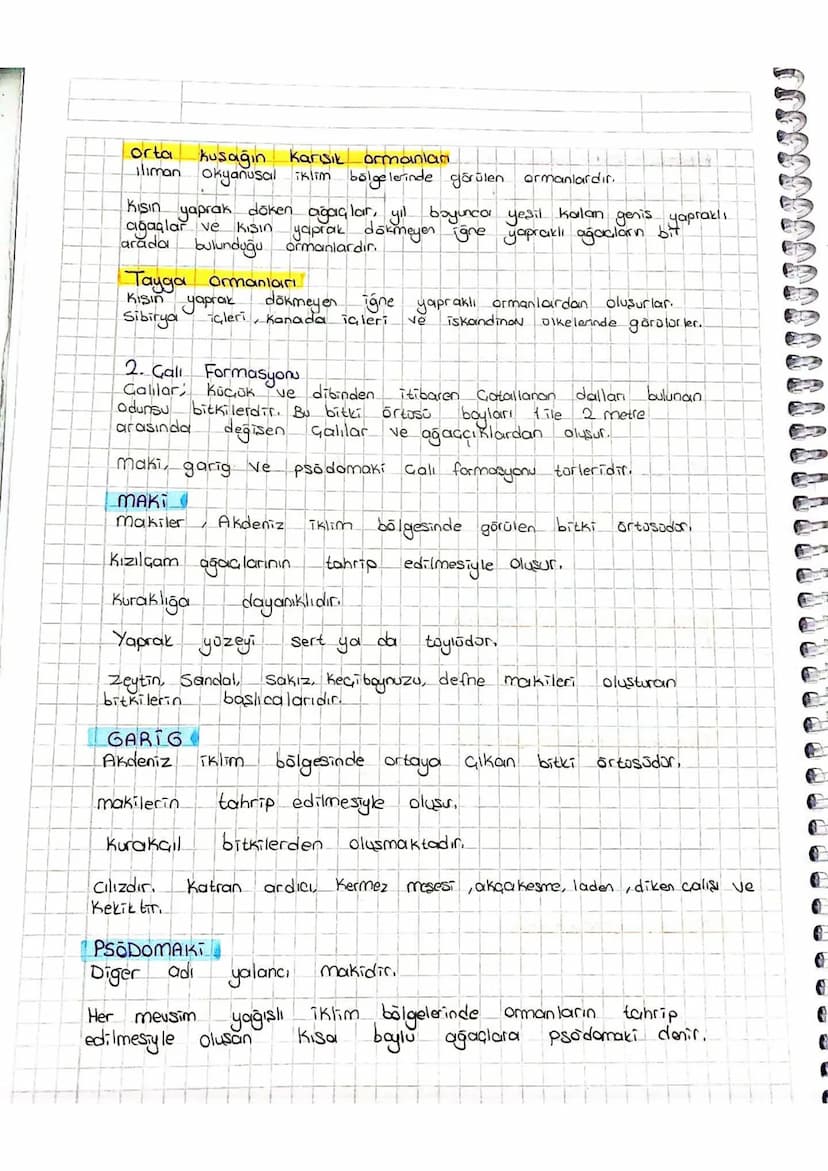 orta kuşağın karışık ormanları
ılıman okyanusal iklim bölgelerinde görülen ormanlardır.
Kışın yaprak döken ağaçlar, yıl boyunca yeşil kalan geniş yapraklı
ağaçlar ve kışın yaprak dökmeyen iğne yapraklı ağaçların bir
arada bulunduğu ormanlardır.
Tayga ormanları
Kışın yaprak dökmeyen iğne yapraklı ormanlardan oluşurlar.
Sibirya içleri, Kanada içleri ve iskandinav ülkelerinde görülürler.
2. Çalı Formasyonu
Çalılar; küçük ve dibinden itibaren çatallanan dalları bulunan
odunsu bitkilerdir. Bu bitki örtüsü boyları 1 ile 2 metre
arasında değişen çalılar ve ağaççıklardan oluşur.
maki, garig ve psödomaki çalı formasyonu türleridir.
MAKİ
makiler, Akdeniz iklim bölgesinde görülen bitki örtüsüdür.
Kızılçam ağaçlarının tahrip edilmesiyle oluşur.
Kuraklığa dayanıklıdır.
Yaprak yüzeyi sert ya da tüylüdür.
Zeytin, Sandal, sakız, keçiboynuzu, defne makileri oluşturan
bitkilerin başlıcalarıdır.
GARİG
Akdeniz iklim bölgesinde ortaya çıkan bitki örtüsüdür.
makilerin tahrip edilmesiyle oluşur.
Kurakçıl bitkilerden oluşmaktadır.
Cılızdır. Katran ardıcı, Kermez meşesi, akçakesme, laden, diken çalısı ve
kekiktir.
PSÖDOMAKİ
Diğer adı yalancı makidir.
Her mevsim yağışlı iklim bölgelerinde ormanların tahrip
edilmesiyle oluşan kısa boylu ağaçlara psödomaki denir.